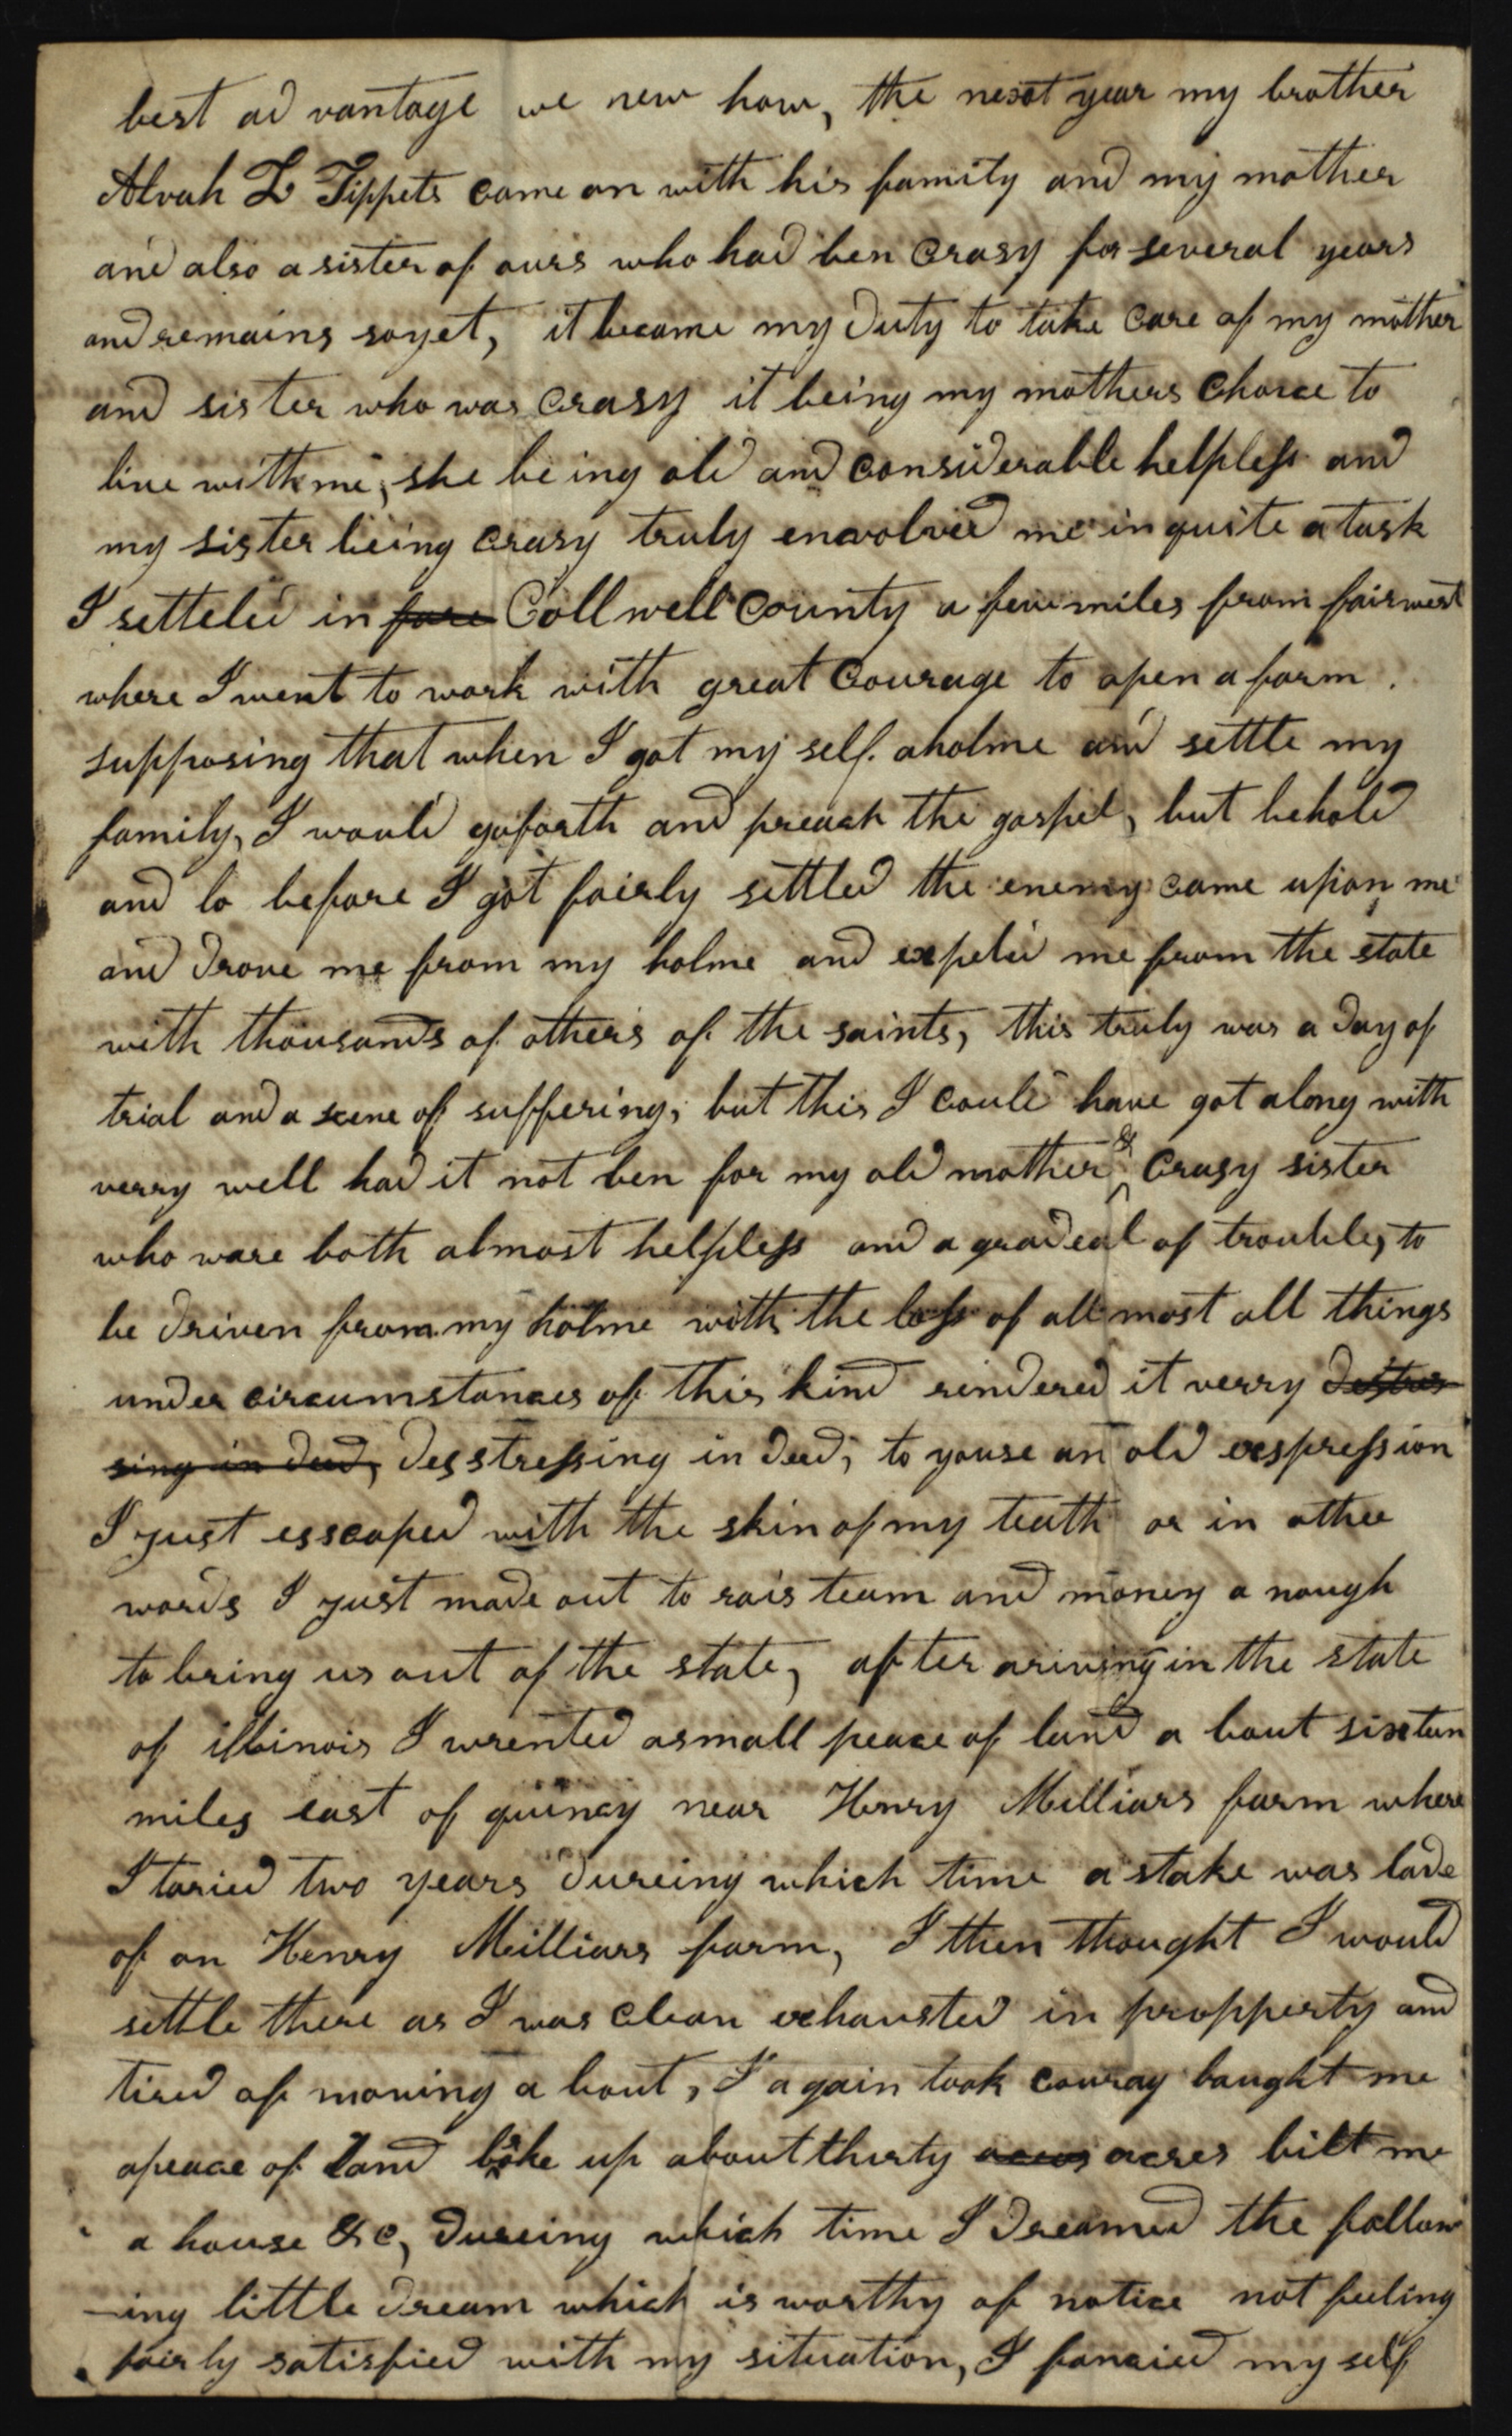 best ad vantage we new how, the next year my brother
Alvah L Tippets came on with his family and my mother
and also a sister of ours who had ben crasy for several years
and remains so yet, it became my duty to take care of my mother
and sister who was crasy it being my mothers choice to
live with me, she being old and considerable helpless and
my sister being crasy truly envolved me in quite a task
I setteled in fare Collwell County a few miles from fairwest
where I went to work with great courage to open a farm.
supposing that when I got my self a holme and settle my
family, I would go forth and preach the gospel, but behold
and lo before I got fairly settled the enemy came upon me
and drove me from my holme and expeled me from the state
with thousands of others of the saints, this truly was a day of
trial and a scene of suffering, but this I could have got along with
verry well had it not ben for my old mother & crasy sister
who ware both almost helpless and a gradeal of trouble, to
be driven from my holme with the loss of all most all things
under circumstances of this kind rindered it verry destres
sing in deed, desstressing in deed, to youse an old exspression
I just esscaped with the skin of my teath or in other
words I just made out to rais team and money a nough
to bring us out of the state, after ariving in the state
of illinois I wrented a small peace of land a bout sixteen
miles east of quincy near Henry Milliars farm where
I taried two years dureing which time a stake was lade
of on Henry Milliars farm, I then thought I would
settle there as I was clean exhausted in propperty and
tired of moving a bout, I again took couray bought me
a peace of land boke up about thirty acres acres bilt me
a house &c, dureing which time I dreamed the follow
-ing little dream which is worthy of notice not feeling
fairly satisfied with my situation, I fancied my self